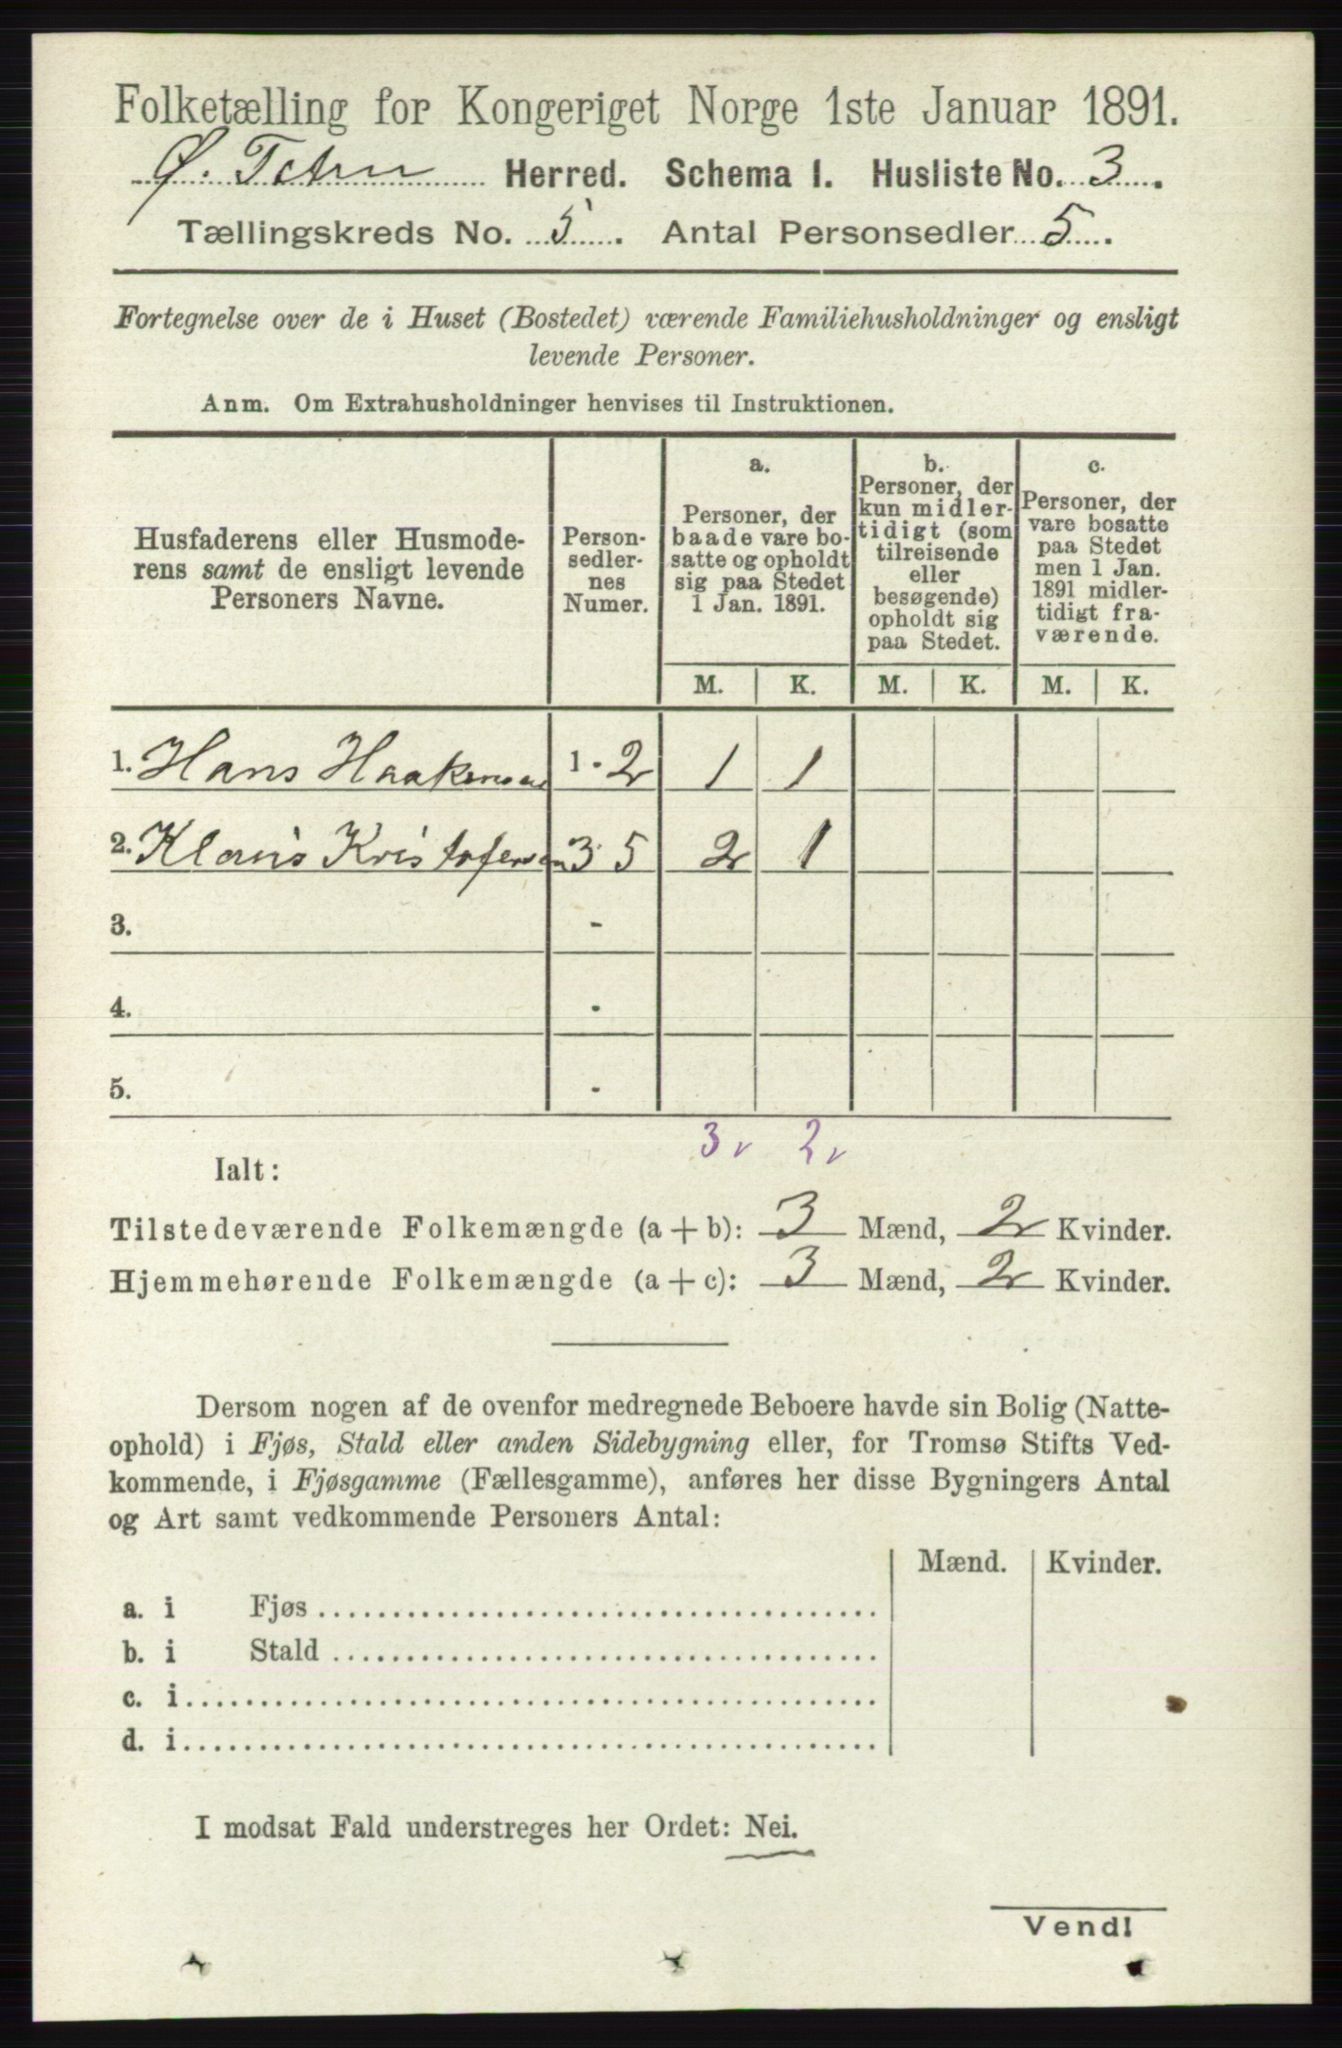 Folketælling for Kongeriget Norge 1ste Januar 1891.
Ø. Toten Herred. Schema I. Husliste No. 3.
Tællingskreds No. 5. Antal Personsedler 5.
Fortegnelse over de i Huset (Bostedet) værende Familiehusholdninger og ensligt
levende Personer.
Anm. Om Extrahusholdninger henvises til Instruktionen.
Husfaderens eller Husmode-
rens samt de ensligt levende
Personers Navne.
Person-
sedler-
nes
Numer.
a.
Personer, der
baade vare bo-
satte og opholdt
sig paa Stedet
1 Jan. 1891.
b.
Personer, der
kun midler-
tidigt (som
tilreisende
eller
besøgende)
opholdt sig
paa Stedet.
c.
Personer, der
vare bosatte
paa Stedet
men 1 Jan.
1891 midler-
tidigt fra-
værende.
M. K. M. K. M. K.
1. Hans Haakensen 1 - 2 1 1
2. Klaus Kristofersen 3 5 2 1
3. -
4. -
5. -
3 v 2 v
Ialt:
Tilstedeværende Folkemængde (a + b): 3 Mænd, 2 Kvinder.
Hjemmehørende Folkemængde (a + c): 3 Mænd, 2 Kvinder.
Dersom nogen af de ovenfor medregnede Beboere havde sin Bolig (Natte-
ophold) i Fjøs, Stald eller anden Sidebygning eller, for Tromsø Stifts Ved-
kommende, i Fjøsgamme (Fællesgamme), anføres her disse Bygningers Antal
og Art samt vedkommende Personers Antal:
Mænd. Kvinder.
a. i Fjøs
b. i Stald
c. i
d. i
I modsat Fald understreges her Ordet: Nei.
Vend!